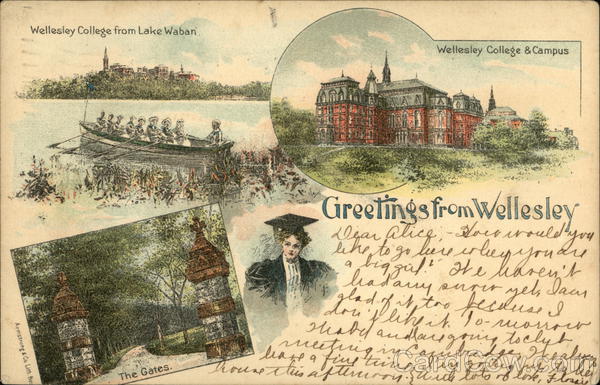 Wellesley College from Lake Waban
Wellesley College & Campus
Greetings from Wellesley
Dear Alice,- How would you
like to go here when you are
a big girl? We haven't
had any snow yet, I am
glad of it too because I
don't like it. To-morrow
Mabel and are going to
meeting
have a fine time
house this afternoon.
The Gates.
Armstrong & Co. Lith.
CardCow.com